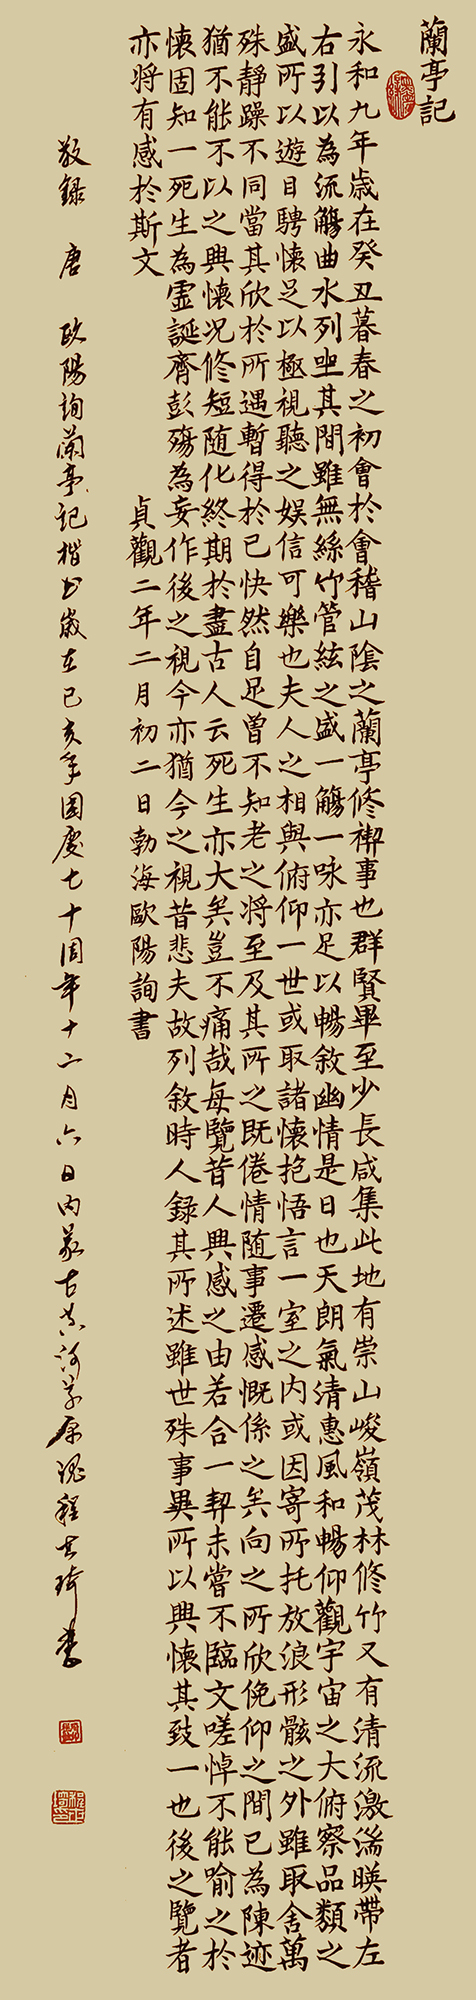 蘭亭記
永和九年歲在癸丑暮春之初會於會稽山陰之蘭亭修禊事也群賢畢至少長咸集此地有崇山峻嶺茂林修竹又有清流激湍暎帶左
右引以為流觴曲水列坐其間雖無絲竹管絃之盛一觴一咏亦足以暢敘幽情是日也天朗氣清惠風和暢仰觀宇宙之大俯察品類之
盛所以遊目騁懷足以極視聽之娛信可樂也夫人之相與俯仰一世或取諸懷抱悟言一室之內或因寄所托放浪形骸之外雖取舍萬
殊靜躁不同當其欣於所遇暫得於己快然自足曾不知老之將至及其所之既倦情随事遷感慨係之矣向之所欣俛仰之間已為陳迹
猶不能不以之興懷况修短随化終期於盡古人云死生亦大矣豈不痛哉每覽昔人興感之由若合一契未嘗不臨文嗟悼不能喻之於
懷固知一死生為虛誕齊彭殤為妄作後之視今亦猶今之視昔悲夫故列敘時人錄其所述雖世殊事異所以興懷其致一也後之覽者
亦將有感於斯文
貞觀二年二月初二日勃海歐陽詢書
敬錄 唐 歐陽詢蘭亭記楷書歲在己亥年國慶七十周年十二月六日內蒙古草原